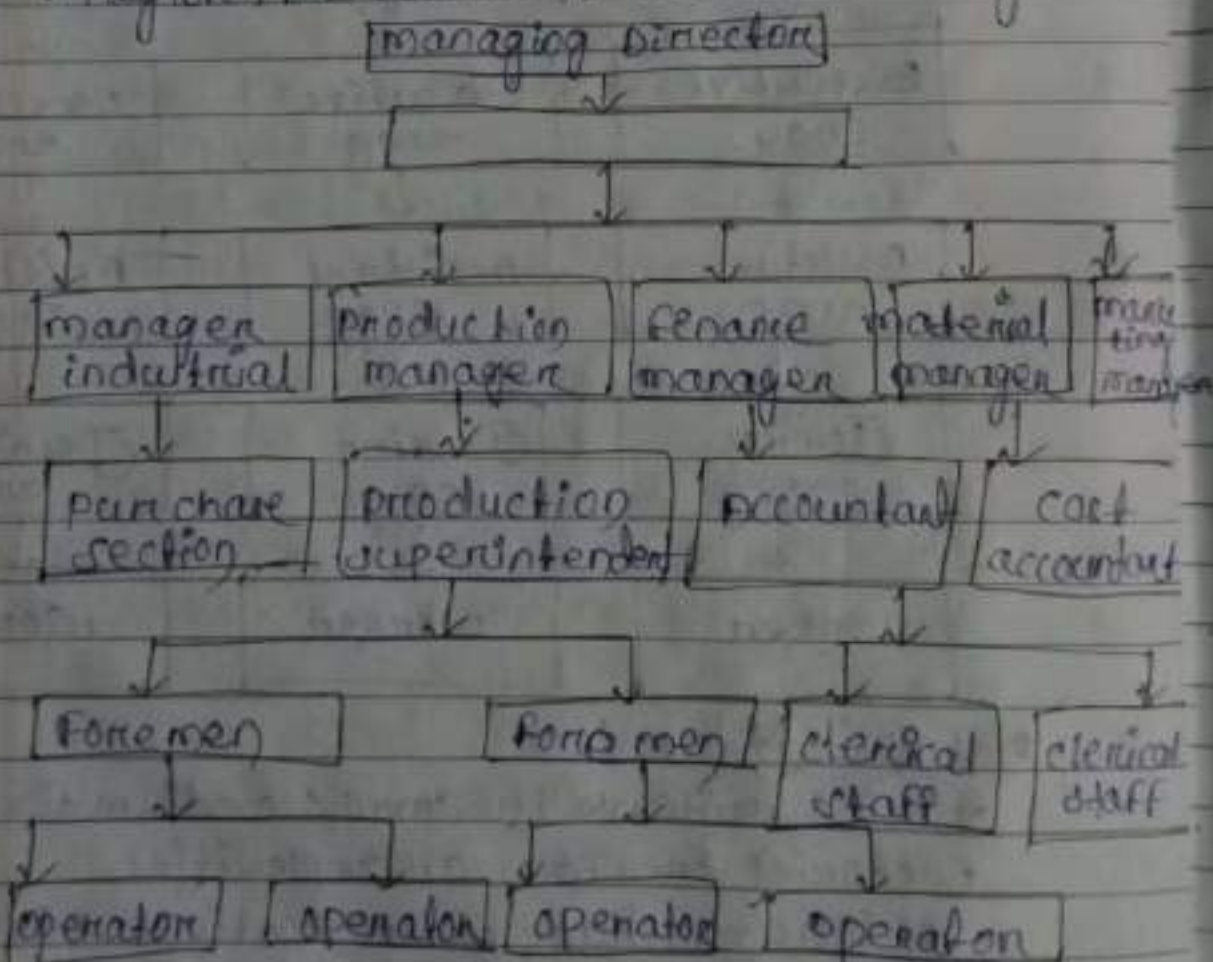 managing Director
manager industrial
production manager
fenance manager
material manager
purchase section
production superintendent
Accountant
cost accountant
Foremen
Foremen
clerical staff
clerical staff
operator
operator
operator
operator